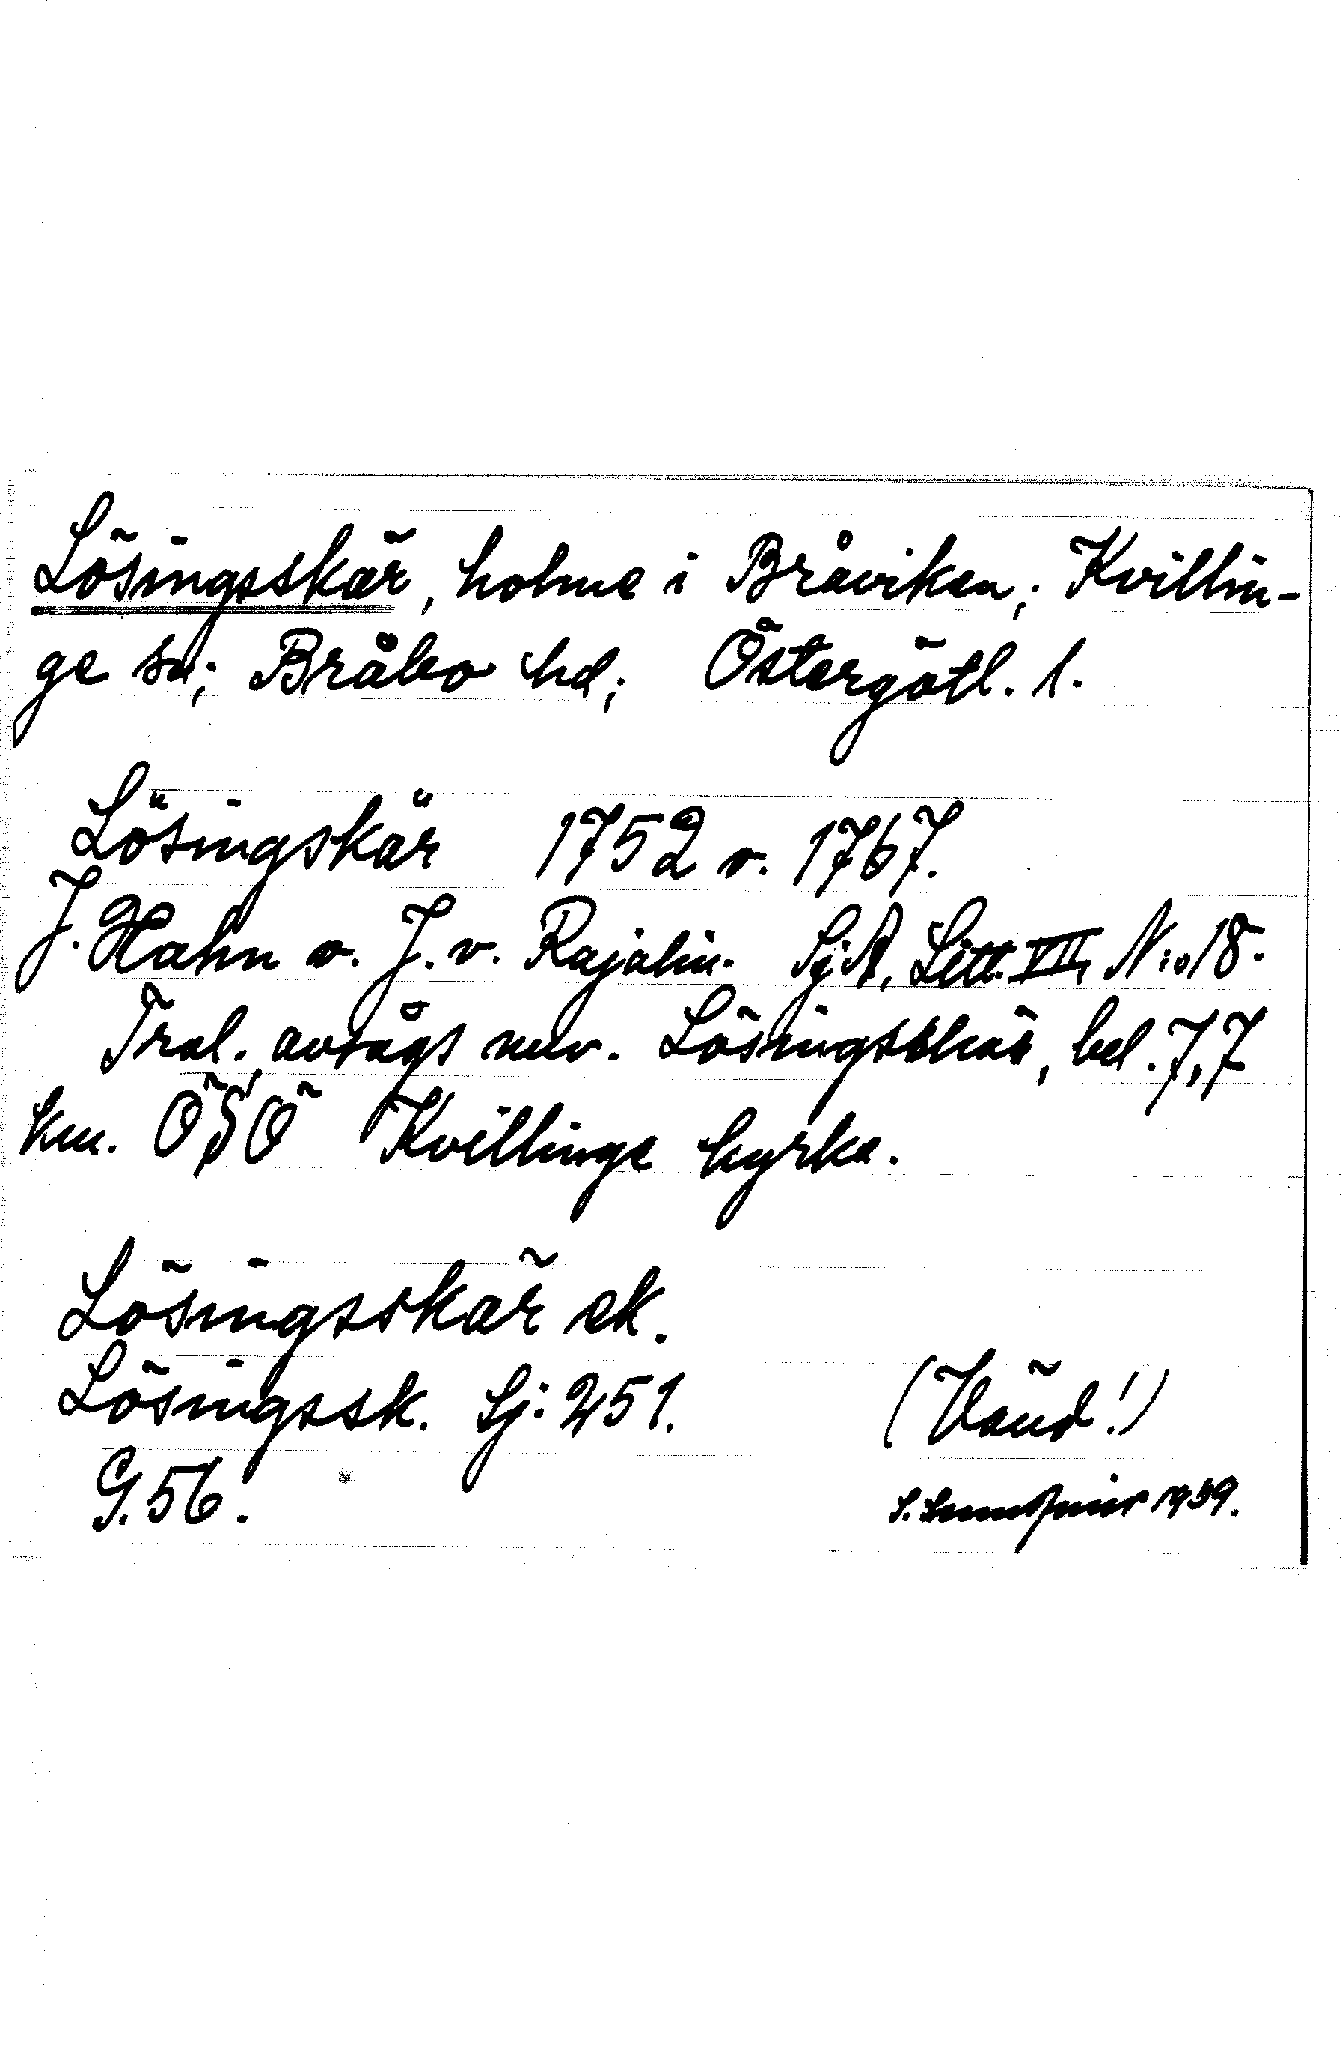 Lösingsskär, holme i Bråviken; Kvillin-
ge sn; Bråbo hd; Östergötl. l.
Lösingskär 1752 o. 1767.
J. Hahn o. J. v. Rajalin. SjA, Litt. VII, N:o 18.
Trol. avsågs nuv. Lösingsskär, bel. 7,7
km. ÖSÖ Kvillinge kyrka.
Lösingsskär ek.
Lösingssk. Sj: 251.
(Vänd!)
G. 56.
1939.